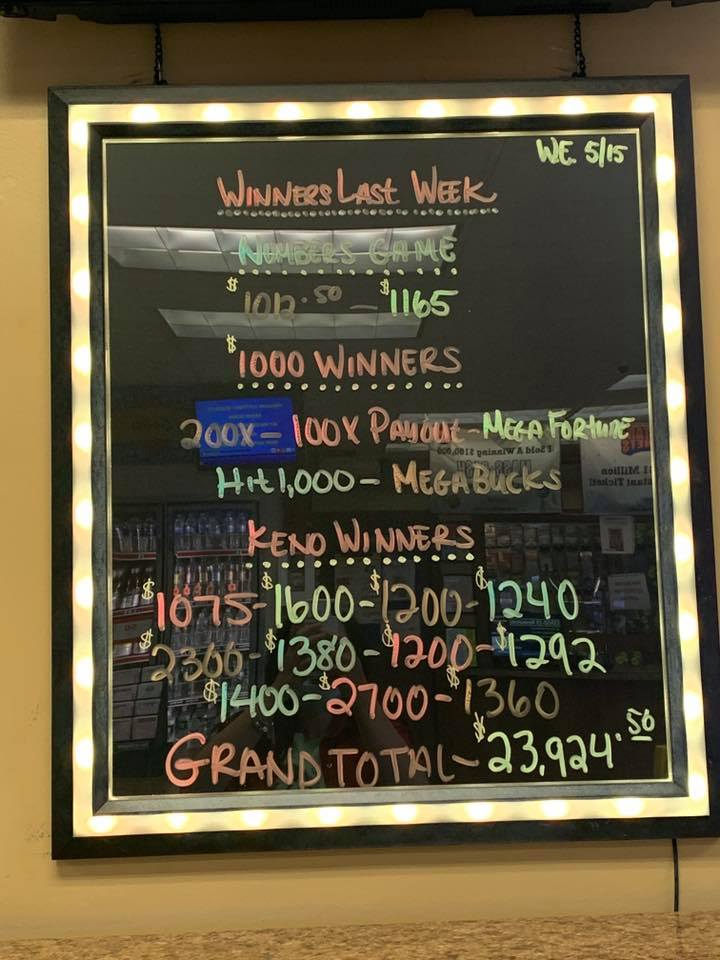 W.E. 5/15
WINNERS LAST WEEK
NUMBERS GAME
$1012.50 - $1165
$1000 WINNERS
200X - 100X PAYOUT - MEGA FORTUNE
Hit 1,000 - MEGABUCKS
KENO WINNERS
$1075 - $1600 - $1200 - $1240
$2300 - $1380 - $1200 - $1292
$1400 - $2700 - $1360
GRAND TOTAL - $23,924.50